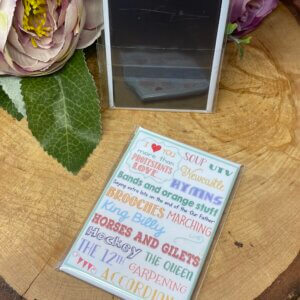 I ❤ YOU
more than
SOUP UTV
PROTESTANTS
LOVE
Newcastle
HYMNS
Bands and orange stuff
Saying extra bits on the end of the 'Our Father'
BROOCHES MARCHING
King Billy
HORSES AND GILETS
Hockey THE QUEEN
THE 12TH GARDENING
ACCORDIONS